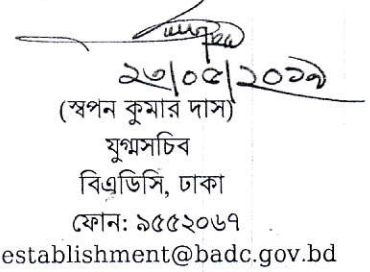 ২৩/০৫/২০১৯
(স্বপন কুমার দাস)
যুগ্মসচিব
বিএডিসি, ঢাকা
ফোন: ৯৫৫২০৬৭
establishment@badc.gov.bd